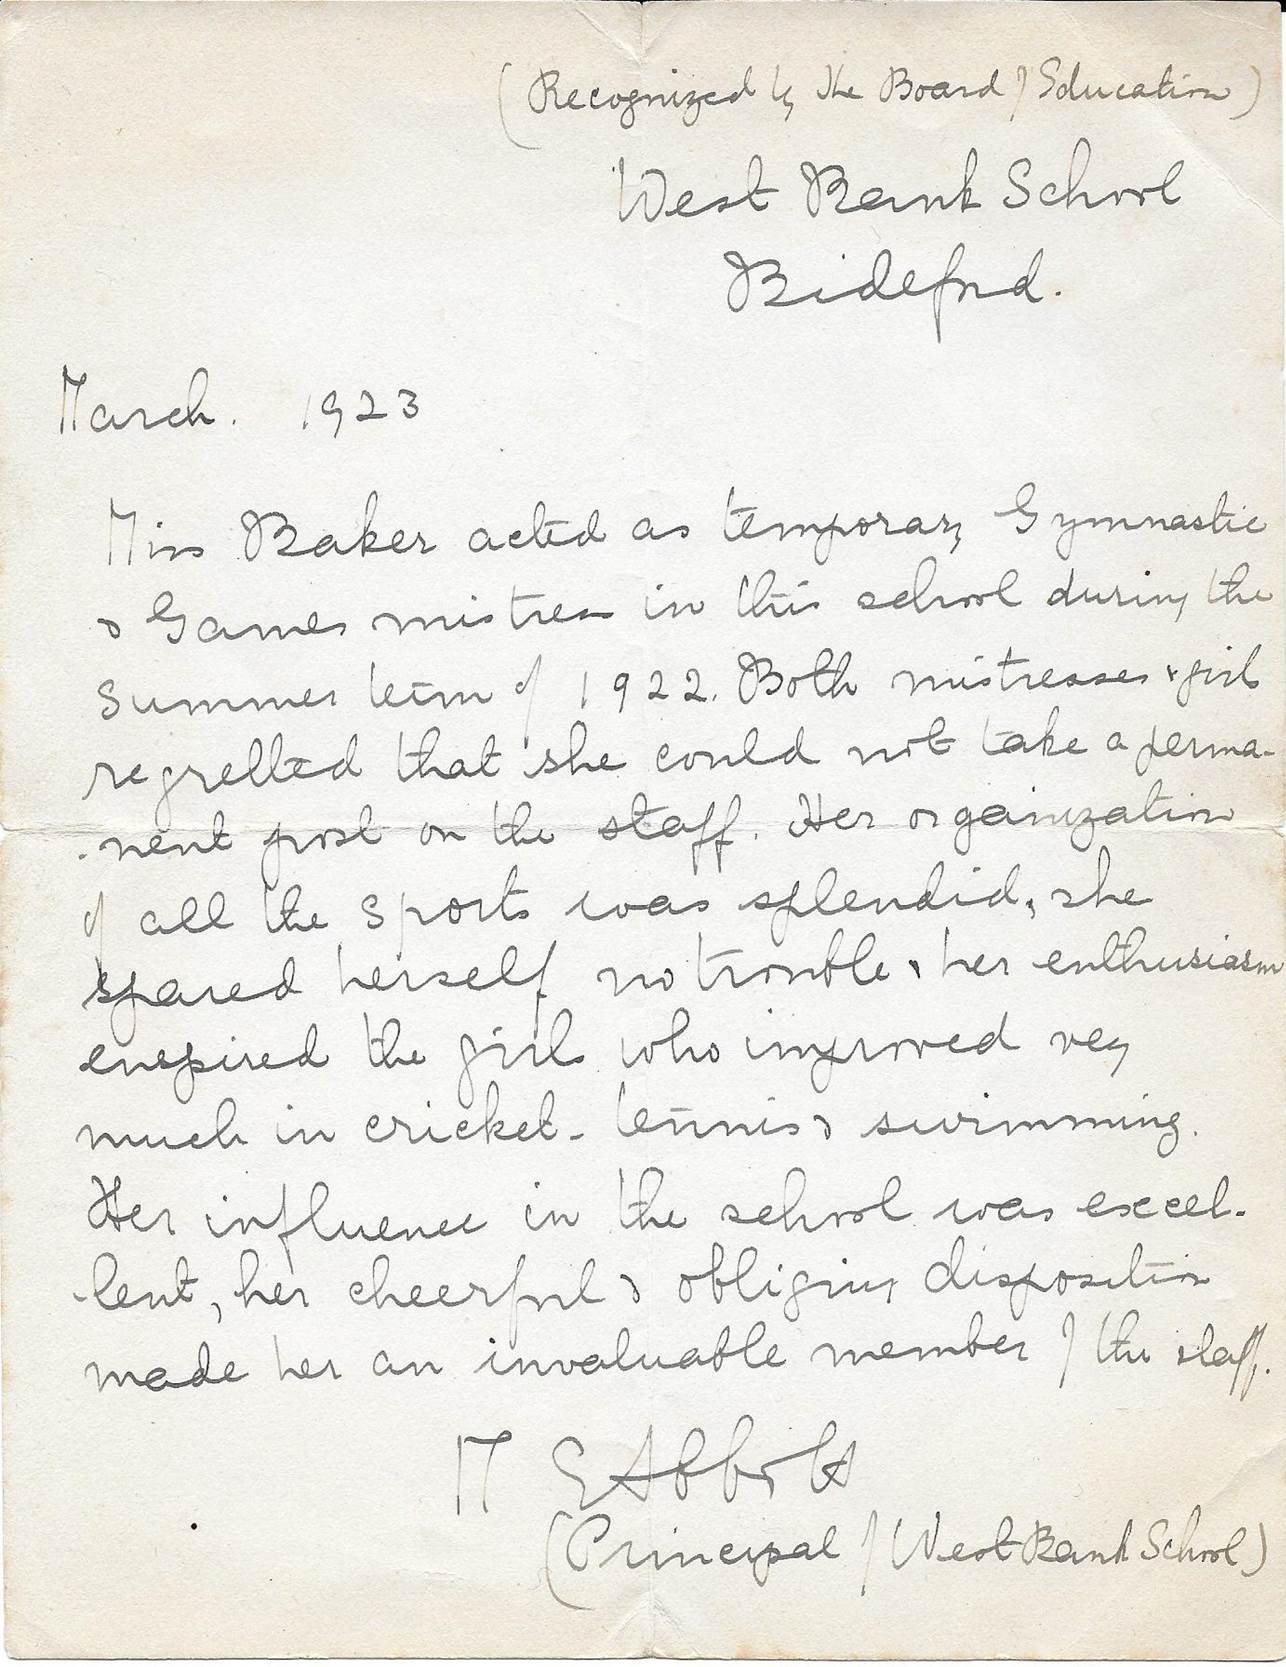 (Recognized by the Board of Education)
West Bank School
Bideford.
March. 1923
Miss Baker acted as temporary Gymnastic
& Games mistress in this school during the
summer term of 1922. Both mistresses & girls
regretted that she could not take a perma-
-nent post on the staff. Her organization
of all the sports was splendid, she
spared herself no trouble & her enthusiasm
enspired the girls who improved very
much in cricket - tennis & swimming.
Her influence in the school was excel-
-lent, her cheerful & obliging disposition
made her an invaluable member of the staff.
M E Abbott
(Principal of West Bank School)